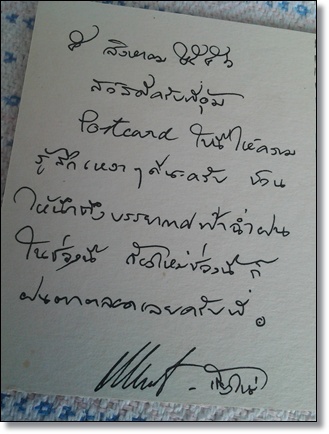 ๕ สิงหาคม ๒๕๕๖
สวัสดีครับพี่อุ้ม
Postcard ใบนี้ให้ความ
รู้สึกเหงาๆดีนะครับ ชวน
ให้นึกถึงบรรยากาศฟ้าฉ่ำฝน
ในช่วงนี้ เชียงใหม่ช่วงนี้ก็
ฝนตกตลอดเลยครับพี่
- เชียงใหม่